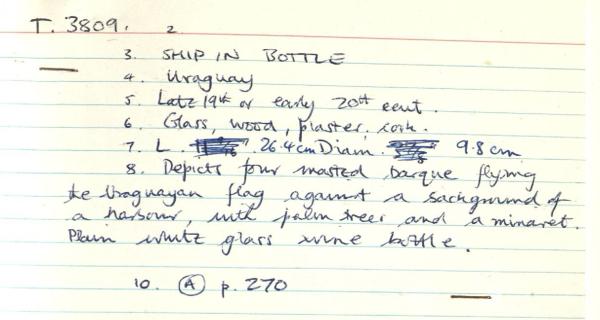 T. 3809. 2.
3. SHIP IN BOTTLE
4. Uraguay
5. Late 19th or early 20th cent.
6. Glass, wood, plaster, cork.
7. L. 26.4cm Diam. 9.8 cm
8. Depicts four masted barque flying
the Uraguayan flag against a background of
a harbour, with palm trees and a minaret.
Plain white glass wine bottle.
10. A p. 270